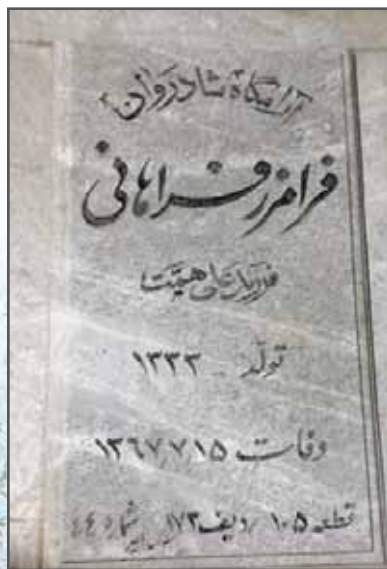 آرامگاه شادروان
فرامرز فراهانی
فرزند علی همت
تولد ۱۳۳۳
وفات ۱۳۶۷٫۷٫۱۵
قطعه ۱۰۵ ردیف ۱۷۳ شماره ٤٤